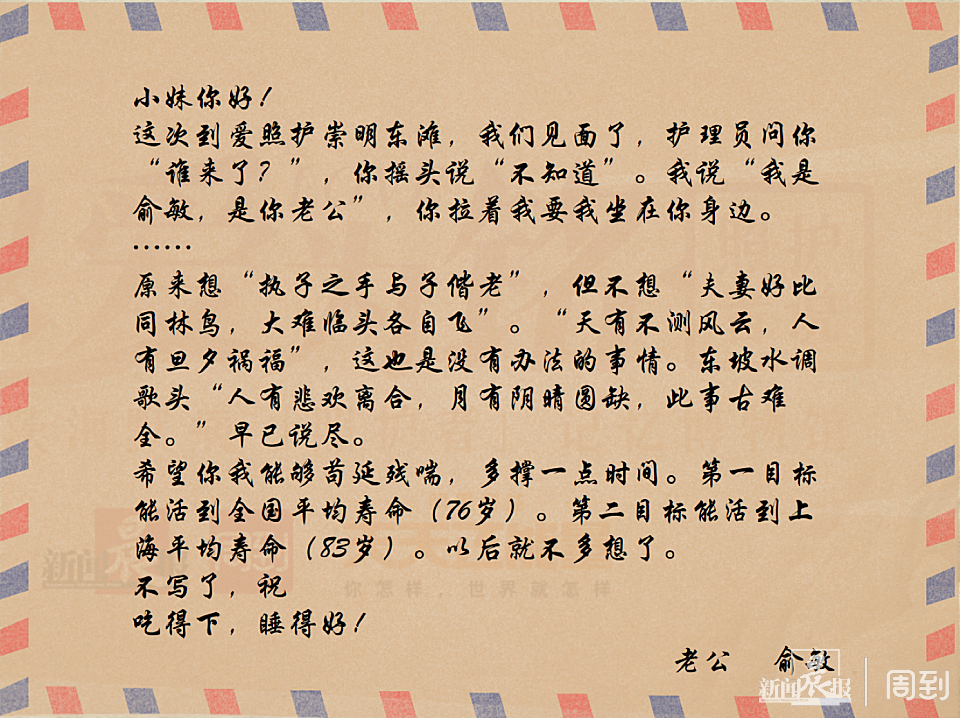 小妹你好！
这次到爱照护崇明东滩，我们见面了，护理员问你
“谁来了？”，你摇头说“不知道”。我说“我是
俞敏，是你老公”，你拉着我要我坐在你身边。
……
原来想“执子之手与子偕老”，但不想“夫妻好比
同林鸟，大难临头各自飞”。“天有不测风云，人
有旦夕祸福”，这也是没有办法的事情。东坡水调
歌头“人有悲欢离合，月有阴晴圆缺，此事古难
全。”早已说尽。
希望你我能够苟延残喘，多撑一点时间。第一目标
能活到全国平均寿命（76岁）。第二目标能活到上
海平均寿命（83岁）。以后就不多想了。
新闻晨报
你怎样，世界就怎样
不写了，祝
吃得下，睡得好！
老公 俞敏
新闻晨报 | 周到